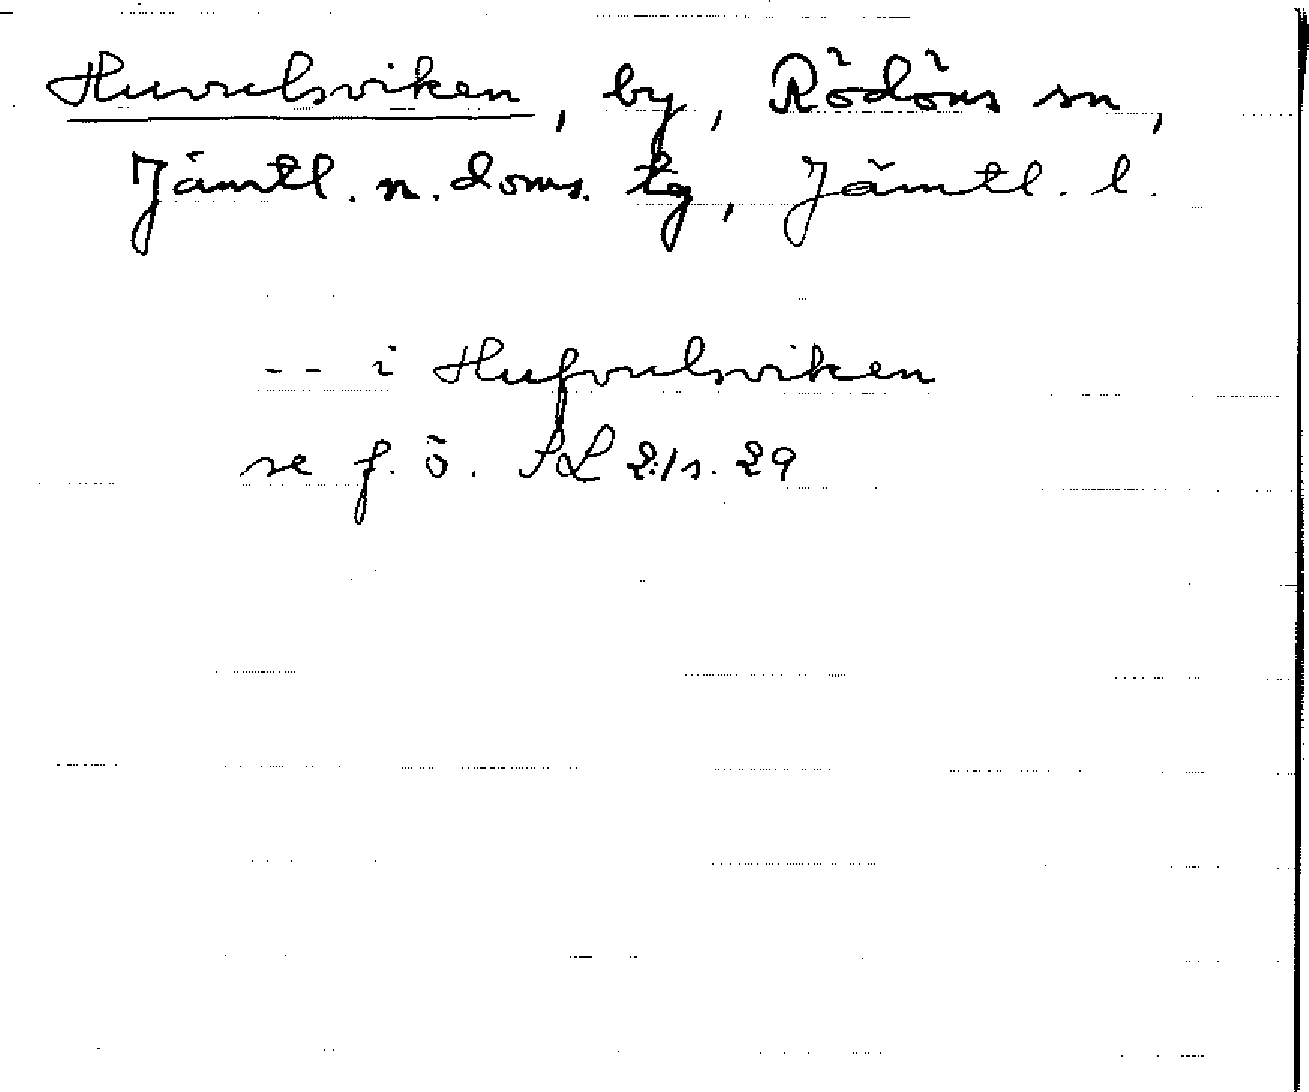 Huvulsviken, by, Rödöns sn,
Jämtl. n. doms. tg, Jämtl. l.
-- i Hufvulsviken
se f. ö. SL 2:1 s. 29